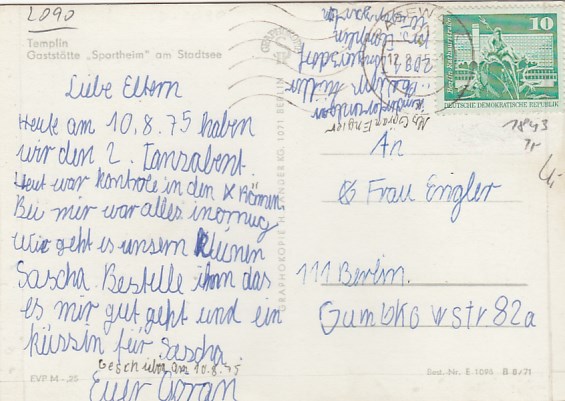 2090
Templin
Gaststätte „Sportheim" am Stadtsee
Liebe Eltern
Heute am 10.8.75 haben
wir den 2. Tanzabent.
Heut war Kontrole in den Rämen
Bei mir war alles inornug
Wie geht es unserm kleinen
Sascha. Bestelle ihm das
es mir gut geht und ein
küssin für Sascha
Geschriben am 10.8.75
Euer Goran
EVP M -,25
GRAPHOKOPIE H. SANDER KG, 1071 BERLIN
Abs Goran Engler
Kinderferienlager
Krs. Templin
10
Berlin, Neptunbrunnen
DEUTSCHE DEMOKRATISCHE REPUBLIK
1843
An
Frau Engler
111 Berlin
Gumbkowstr 82a
Best.-Nr. E 1086 B 8/71